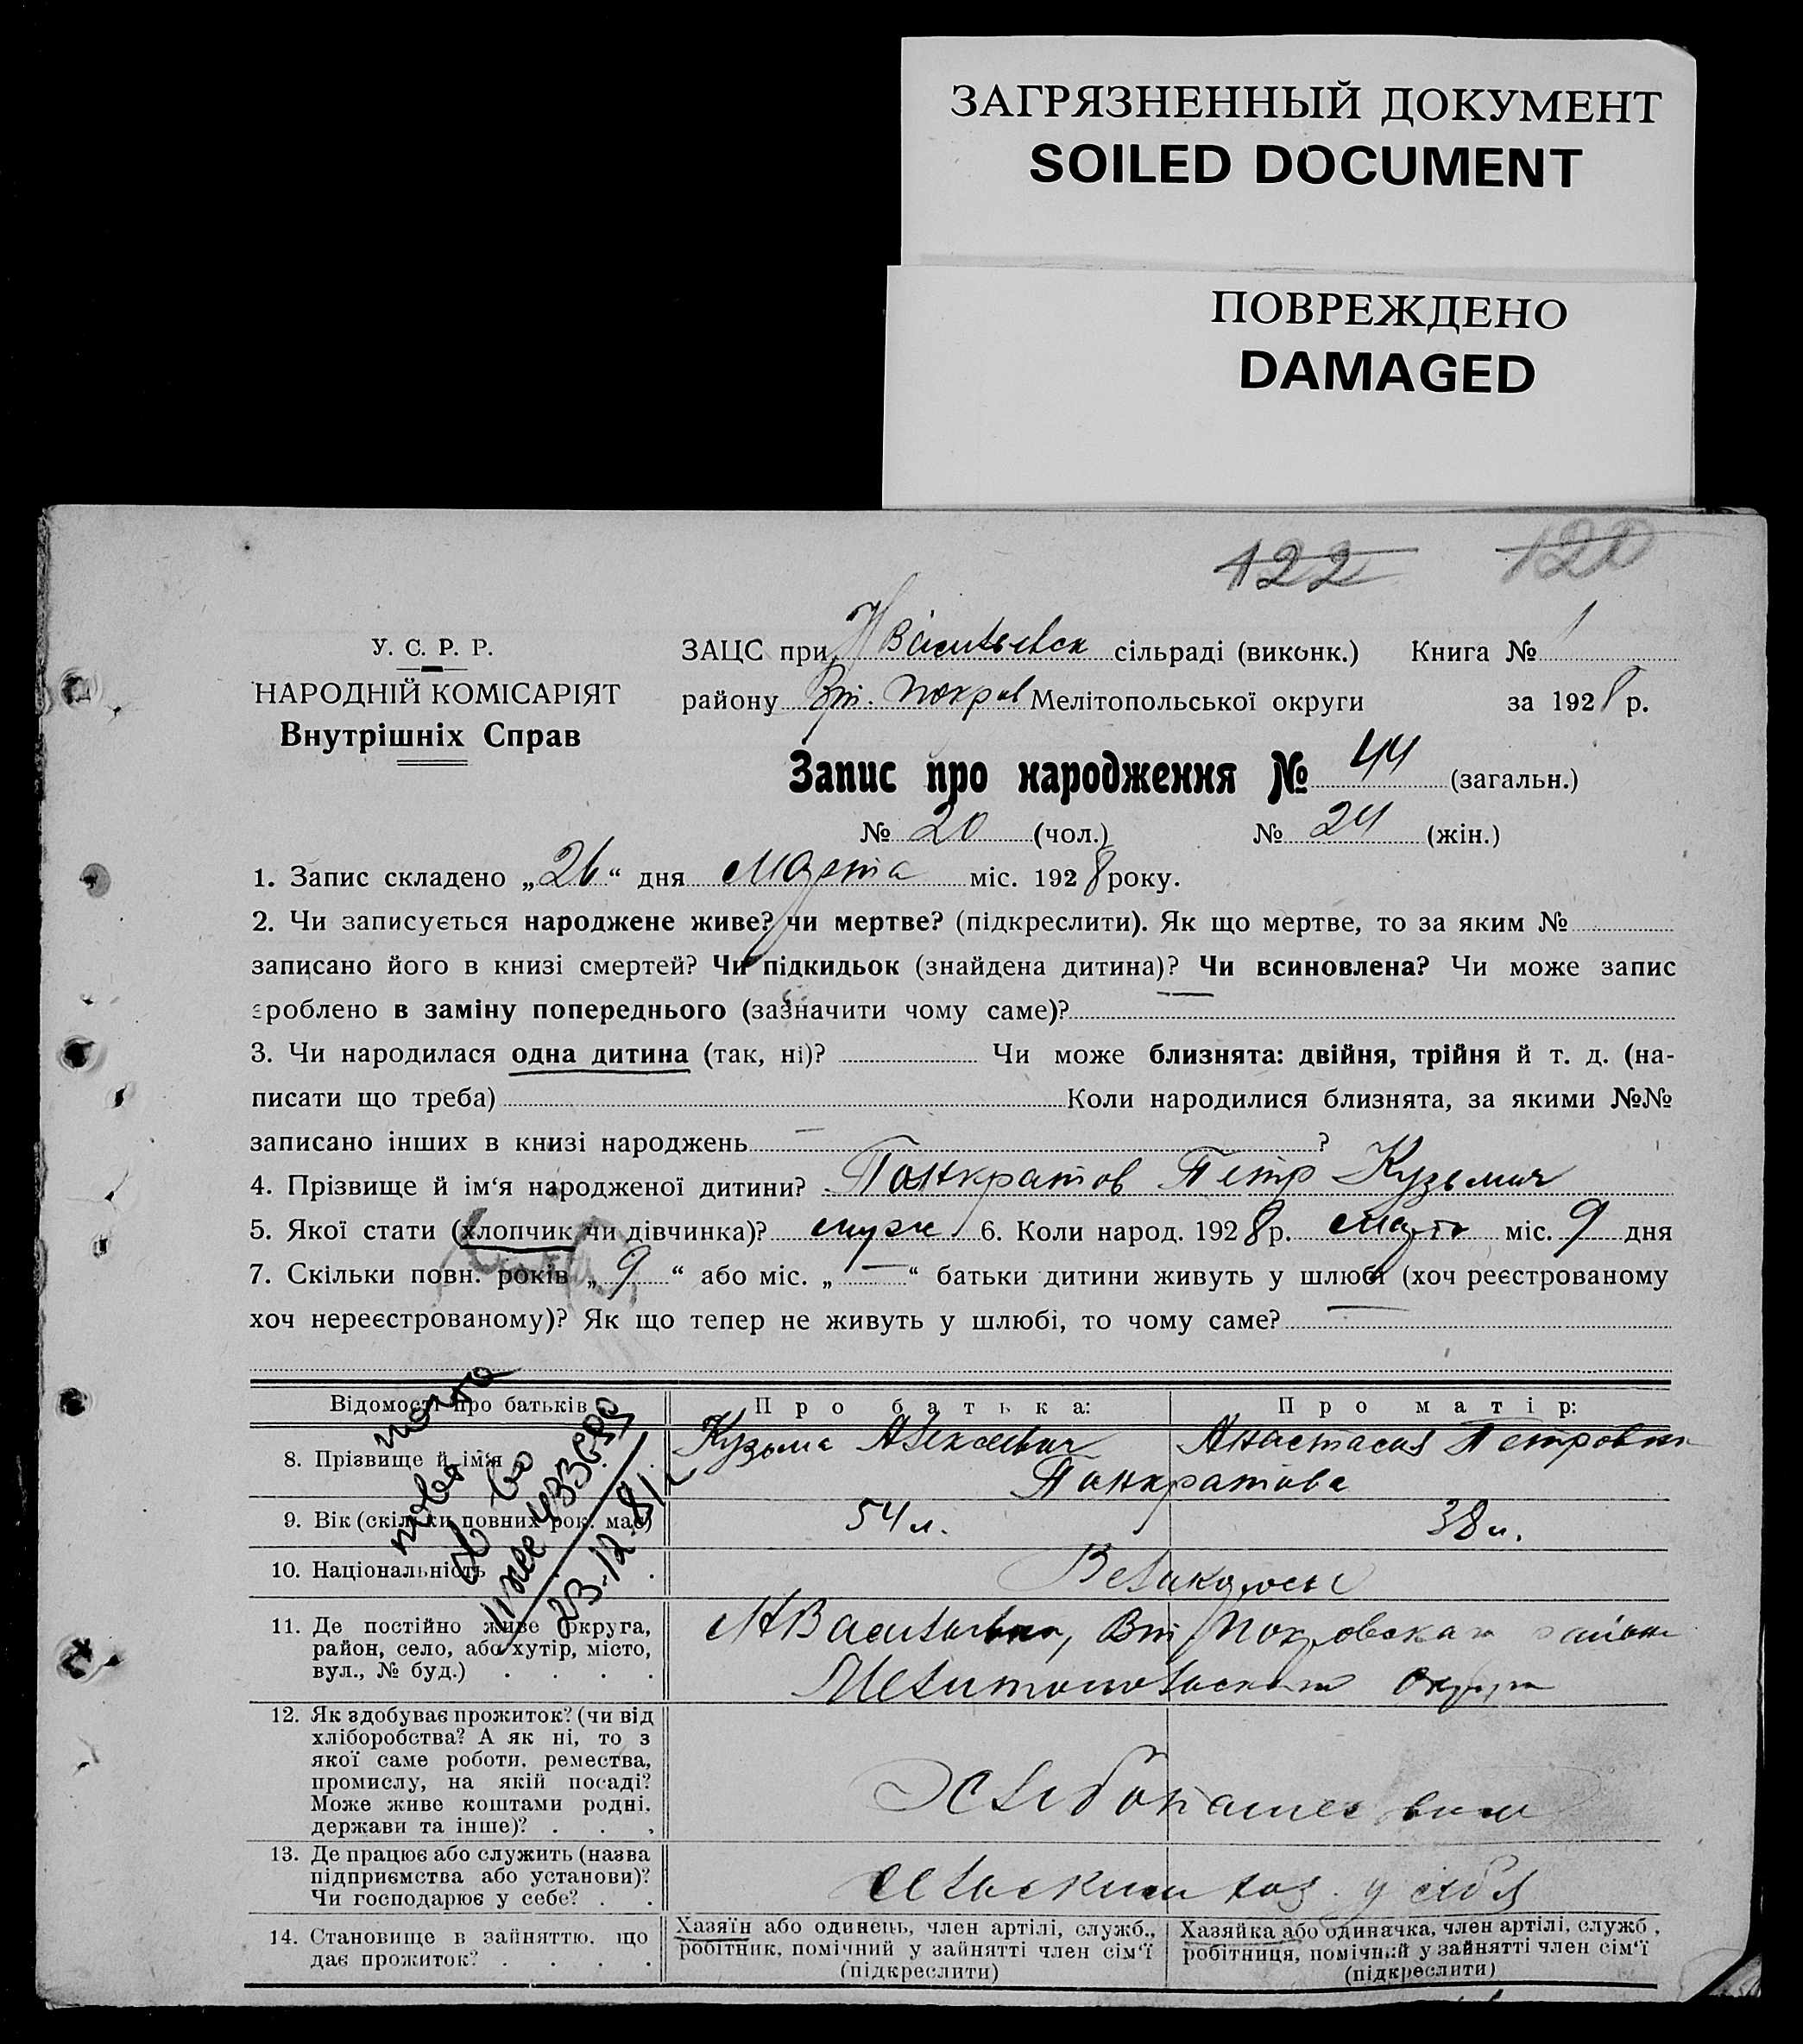 ЗАГРЯЗНЕННЫЙ ДОКУМЕНТ
SOILED DOCUMENT
ПОВРЕЖДЕНО
DAMAGED
122 120
У. С. Р. Р.
НАРОДНІЙ КОМІСАРІЯТ
Внутрішніх Справ
ЗАЦС при Н Васильевск сільраді (виконк.) Книга № 1
району Вт. Покров Мелітопольської округи за 1928 р.
Запис про народження № 44 (загальн.)
№ 20 (чол.) № 24 (жін.)
1. Запис складено „26“ дня Марта міс. 1928 року.
2. Чи записується народжене живе? чи мертве? (підкреслити). Як що мертве, то за яким №
записано його в книзі смертей? Чи підкидьок (знайдена дитина)? Чи всиновлена? Чи може запис
зроблено в заміну попереднього (зазначити чому саме)?
3. Чи народилася одна дитина (так, ні)? Чи може близнята: двійня, трійня й т. д. (на-
писати що треба) Коли народилися близнята, за якими №№
записано інших в книзі народжень —?
4. Прізвище й ім‘я народженої дитини? Панкратов Петр Кузьмич
5. Якої стати (хлопчик чи дівчинка)? муж 6. Коли народ. 1928 р. марта міс. 9 дня
7. Скільки повн. років „9“ або міс. „—“ батьки дитини живуть у шлюбі (хоч реєстрованому
хоч нереєстрованому)? Як що тепер не живуть у шлюбі, то чому саме? —
Відомості про батьків
Про батька:
Про матір:
8. Прізвище й ім‘я
Кузьма Алексеевич
Анастасия Петровна
Панкратова
9. Вік (скільки повних рок. має)
54 л.
38 л.
10. Національність .
Великороссы
11. Де постійно живе округа,
район, село, або хутір, місто,
вул., № буд.) . . . .
Н Васильевка, Вт Покровского района
Мелитопольского округа
23.12.81
12. Як здобуває прожиток? (чи від
хліборобства? А як ні, то з
якої саме роботи, ремества,
промислу, на якій посаді?
Може живе коштами родні,
держави та інше)? . . .
Хлебопашеством
13. Де працює або служить (назва
підприємства або установи)?
Чи господарює у себе? . .
сельским хоз. у себя
14. Становище в зайняттю, що
дає прожиток? . . . .
Хазяїн або одинець, член артілі, служб.,
робітник, помічний у зайнятті член сім‘ї
(підкреслити)
Хазяйка або одиначка, член артілі, служб.,
робітниця, помічний у зайнятті член сім‘ї
(підкреслити)